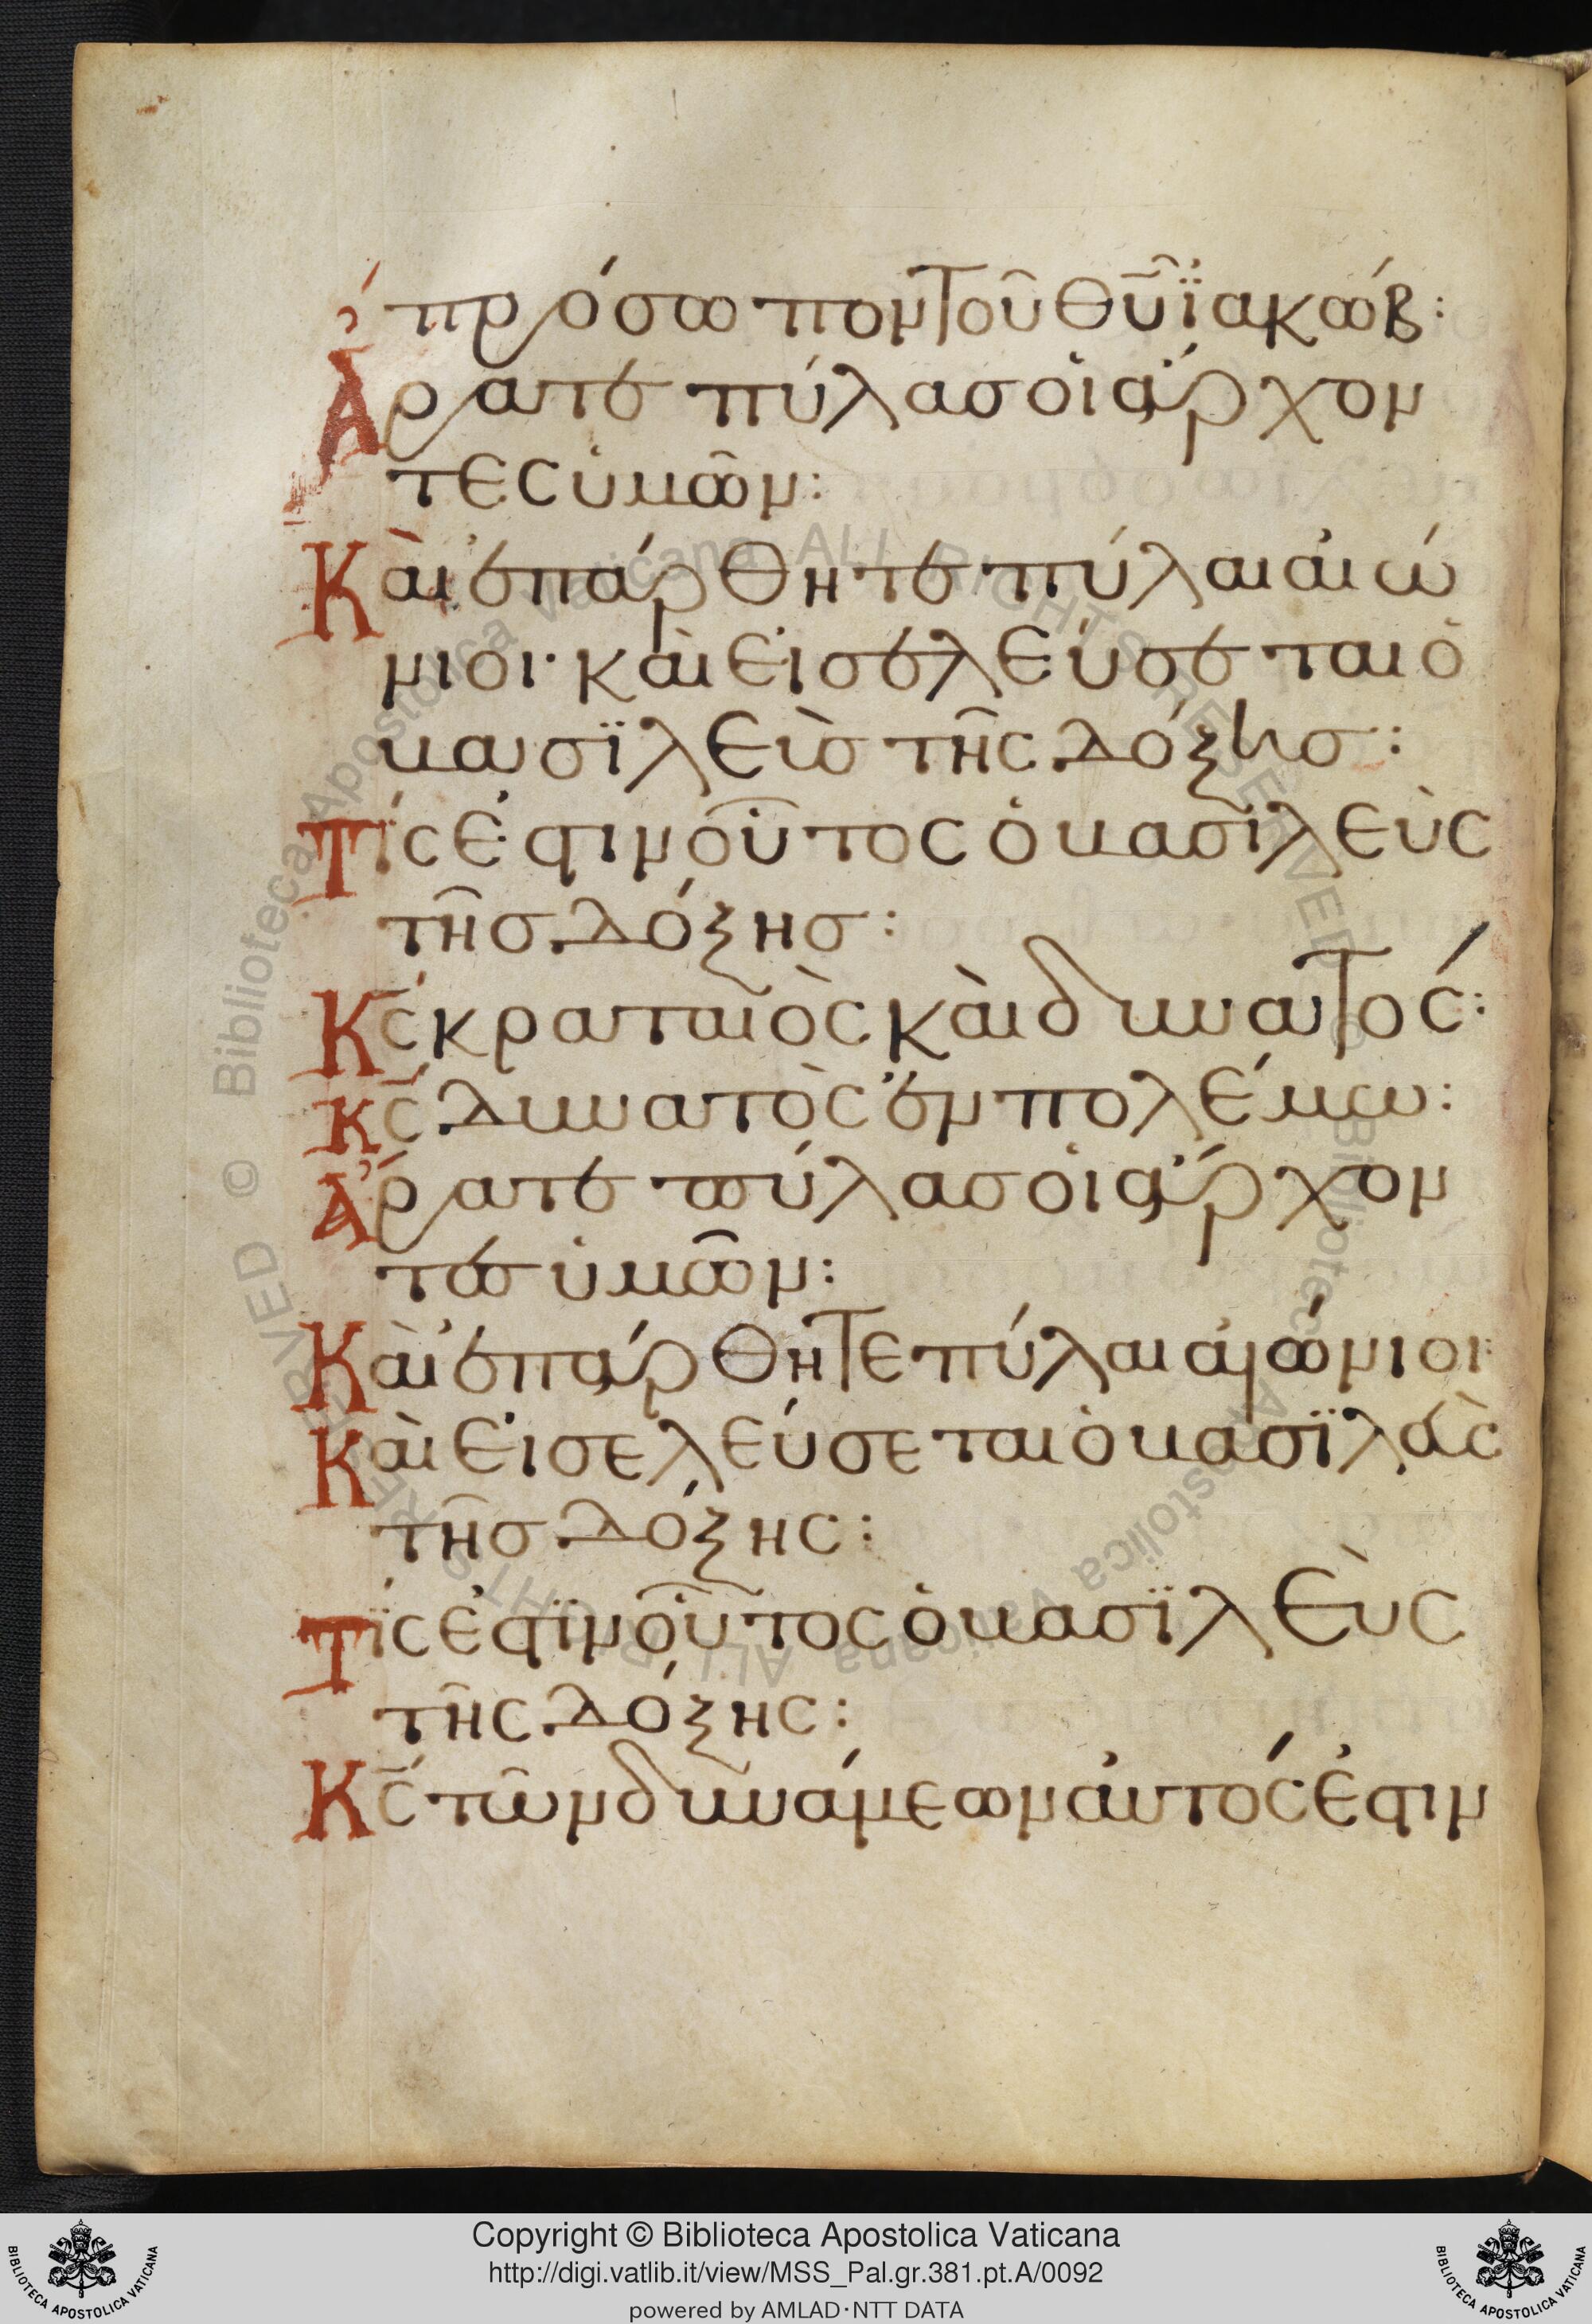 πρόσωπον τοῦ θῦ ϊακώβ:
Ἄρατε πύλας οἱ ἄρχον
τες ὑμῶν:
Καὶ ἐπάρθητε πύλαι αἰώ
νιοι· καὶ εἰσελεύσεται ὁ
βασϊλεὺσ τῆς δόξησ:
Τίς ἐστιν οὗτος ὁ βασιλεὺς
τῆσ δόξησ:
Κς κραταιὸς καὶ δυνατός:
Κς δυνατὸς ἐν πολέμω:
Ἄρατε πύλασ οἱ ἄρχον
τεσ ὑμῶν:
Καὶ ἐπάρθητε πύλαι αἰώνιοι·
Καὶ εἰσελεύσεται ὁ βασϊλεὺς
τῆσ δόξης:
Τίς ἐστϊν οὗτος ὁ βασϊλεὺς
τῆς δόξης:
Κς τῶν δυνάμεων ἀυτός ἐστιν
Copyright © Biblioteca Apostolica Vaticana
http://digi.vatlib.it/view/MSS_Pal.gr.381.pt.A/0092
powered by AMLAD·NTT DATA